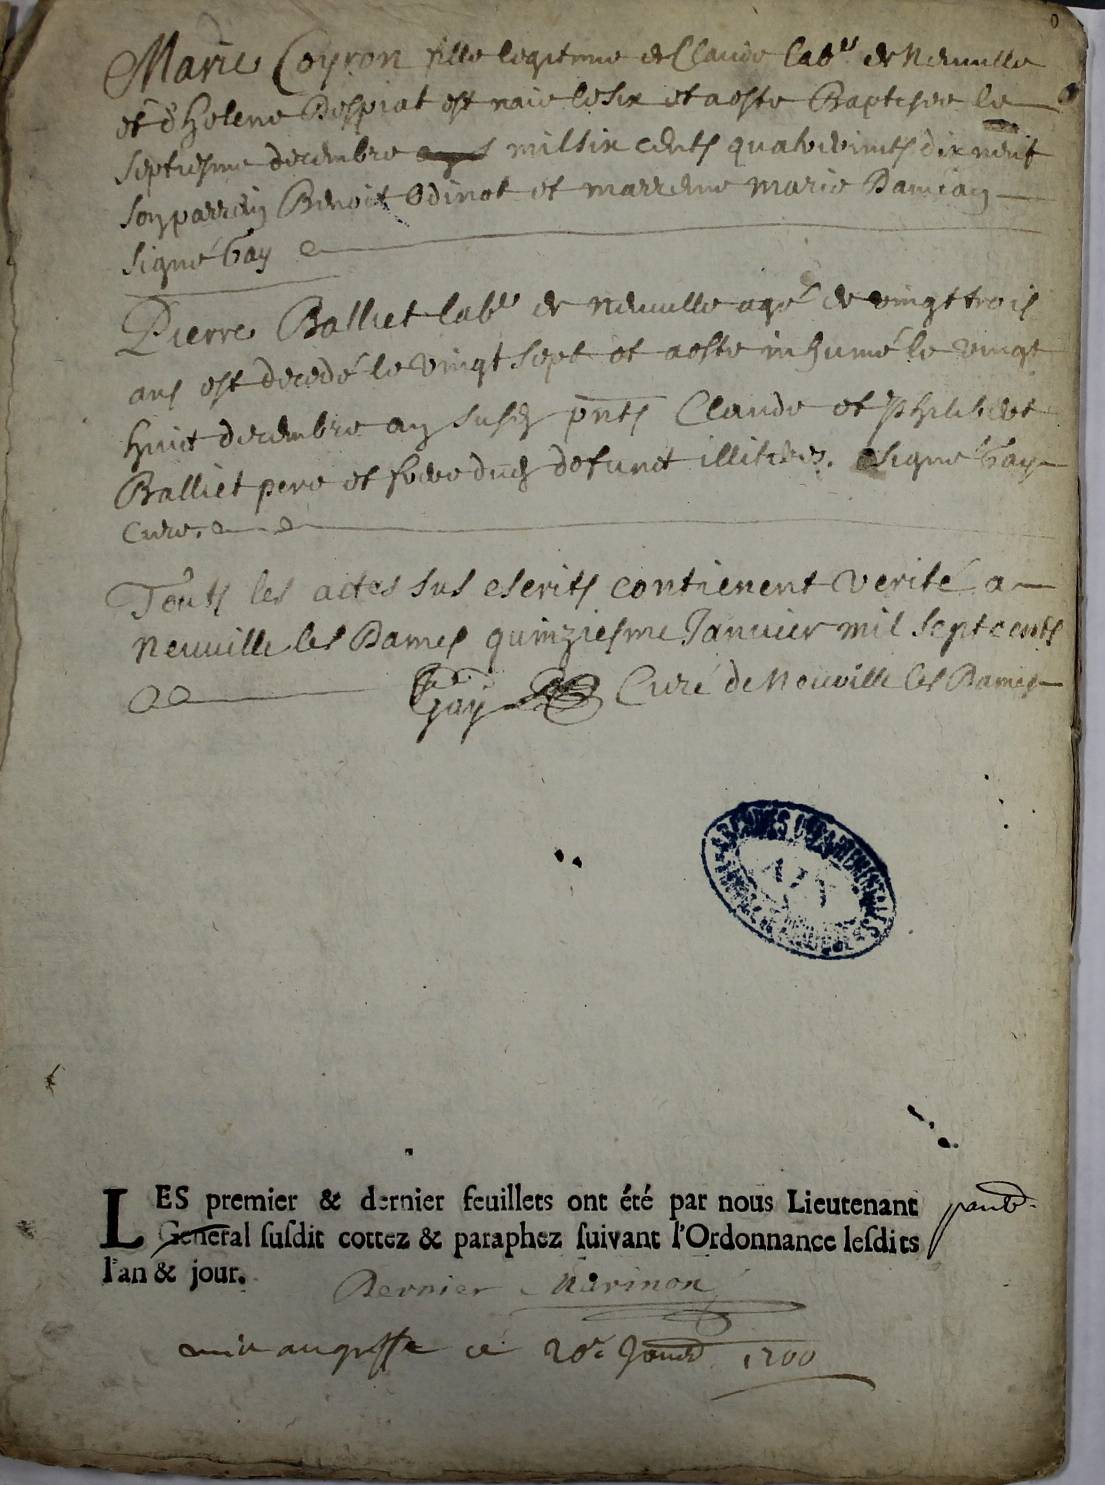 Marie Coyron fille legitime de Claude lab.r de Neuville
et d'helene Despiat est naie le six et a este Baptisee le
septiesme decembre mil six cents quatrevints dix neuf
son parrein Benoit Odinot et marreine marie Damian
signé Gay
Pierre Balliet lab.r de neuville agé de vingt trois
ans est decedé le vingt sept et a este inhumé le vingt
huict decembre an susd pnts Claude et Philibert
Balliet pere et frere dud defunct illiterez. signé Gay
Curé.
Touts les actes sus escrits contienent verité a
Neuville les Dames quinziesme Janvier mil sept cents
Gay Curé de Neuville les Dames
LES premier & dernier feuillets ont été par nous Lieutenant
General susdit cottez & paraphez suivant l'Ordonnance lesdits
l'an & jour.
Bernier Marinon
mis au greffe ce 20e Janv 1700